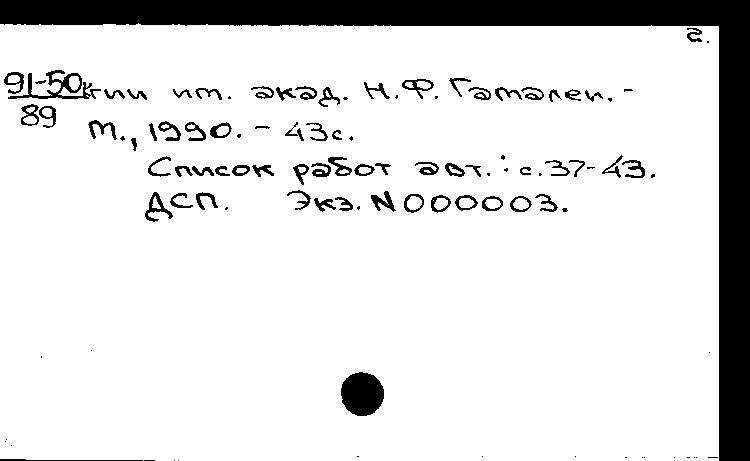 2.
91-50
89
гии им. акад. Н.Ф. Гамалеи. -
М., 1990. - 43с.
Список работ авт.: с.37-43.
ДСП. Экз. N 000003.